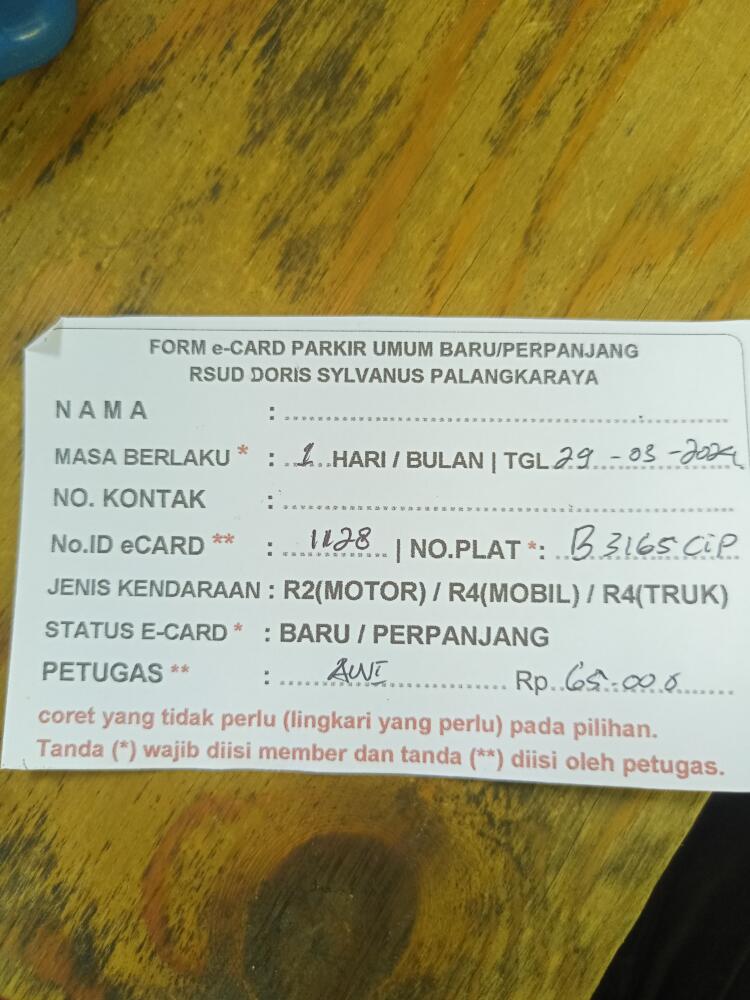 FORM e-CARD PARKIR UMUM BARU/PERPANJANG
RSUD DORIS SYLVANUS PALANGKARAYA
NAMA :
MASA BERLAKU * : 1 HARI / BULAN | TGL 29 - 03 - 2024
NO. KONTAK :
No.ID eCARD ** : 1128 | NO.PLAT *: B 3165 CIP
JENIS KENDARAAN : R2(MOTOR) / R4(MOBIL) / R4(TRUK)
STATUS E-CARD * : BARU / PERPANJANG
PETUGAS ** : AWI Rp. 65.000
coret yang tidak perlu (lingkari yang perlu) pada pilihan.
Tanda (*) wajib diisi member dan tanda (**) diisi oleh petugas.